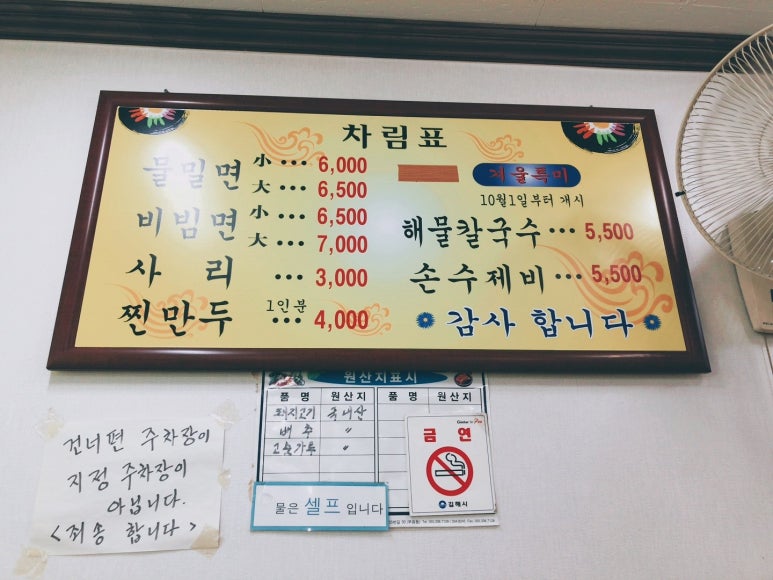 차림표
물밀면 小 ••• 6,000
大 ••• 6,500
비빔면 小 ••• 6,500
大 ••• 7,000
사 리 ••• 3,000
찐만두 1인분 ••• 4,000
겨울특미
10월1일부터 개시
해물칼국수 ••• 5,500
손수제비 ••• 5,500
감사 합니다
원산지표시
품 명 원산지 품 명 원산지
돼지고기 국내산
배 추 〃
고춧가루 〃
금 연
김해시
물은 셀프 입니다
건너편 주차장이
지정 주차장이
아닙니다.
<죄송 합니다>